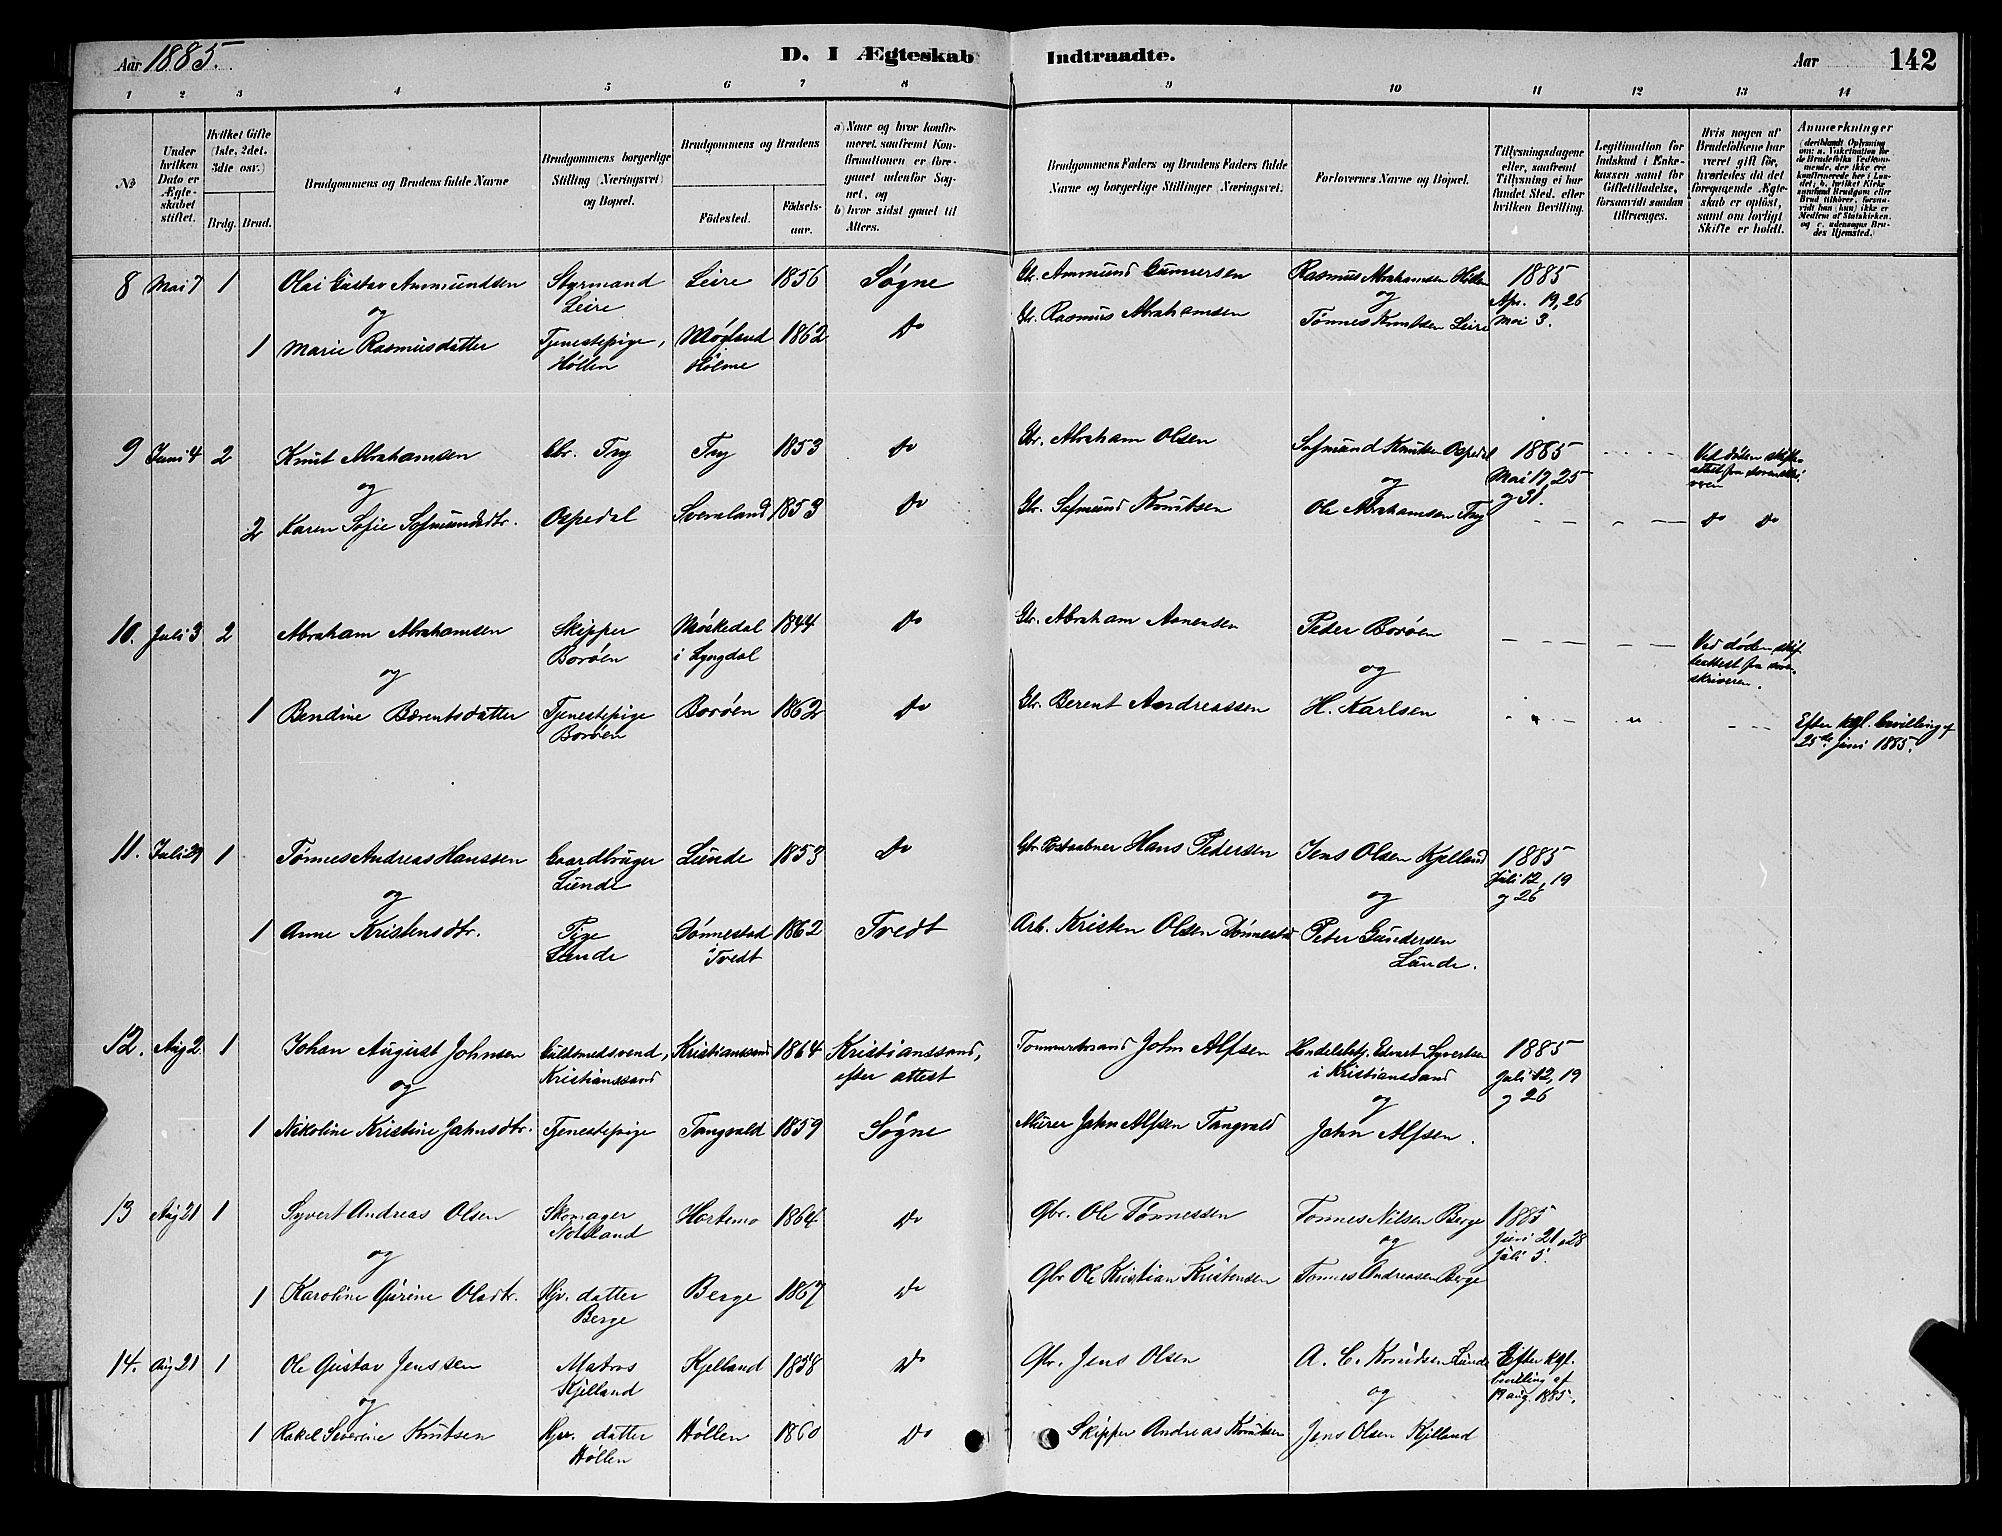 Aar 1885. D. I Ægteskab Indtraadte. Aar 142
1 2 3 4 5 6 7 8 9 10 11 12 13 14
№
Under hvilken Dato er Ægteskabet stiftet.
Hvilket Gifte (1ste, 2det, 3die osv.)
Brdg. Brud.
Brudgommens og Brudens fulde Navne
Brudgommens borgerlige Stilling (Næringsvei) og Bopæl.
Brudgommens og Brudens
Fødested. Fødsels-aar.
a) Naar og hvor konfirmeret, saafremt Konfirmationen er foregaaet udenfor Sognet, og
b) hvor sidst gaaet til Alters.
Brudgommens Faders og Brudens Faders fulde Navne og borgerlige Stillinger (Næringsvei).
Forlovernes Navne og Bopæl.
Tillysningsdagene eller, saafremt Tillysning ei har fundet Sted, efter hvilken Bevilling.
Legitimation for Indskud i Enkekassen samt for Giftetilladelse, forsaavidt saadan tiltrænges.
Hvis nogen af Brudefolkene har været gift før, hvorledes da det foregaaende Ægteskab er opløst, samt om lovligt Skifte er holdt.
Anmærkninger
8 Mai 7 1 Olai Gustav Ammundsen Styrmand Leire Leire 1856 Søgne Gbr. Ammund Gunnersen Rasmus Abrahamsen Høllen 1885 Apr. 19, 26 Mai 3.
og og
1 Marie Rasmusdatter Tjenestepige, Høllen Møgland i Holme 1862 Do Gbr. Rasmus Abrahamsen Tønnes Knudsen Leire
9 Juni 4 2 Knut Abrahamsen Gbr. Try Try 1853 Do Gbr. Abraham Olsen Sofmund Knutsen Ospedal 1885 Mai 17, 25 og 31. Ved døden
og og
2 Karen Sofie Sofmundsdtr. Ospedal 1853 Do Gbr. Sofmund Knutsen Ole Abrahamsen Try Do Do
10. Juli 3 2 Abraham Abrahamsen Skipper Borøen Møskedal i Lyngdal 1844 Do Gbr. Abraham Aanensen Peder Borøen Ved døden skifteattest fra sorenskriveren.
og og
1 Bendine Berentsdatter Tjenestepige Borøen Borøen 1862 Do Gbr. Berent Andreassen H. Karlsen Efter kgl. bevilling af 25de juni 1885.
11. Juli 29 1 Tønnes Andreas Hanssen Gaardbruger Lunde Lunde 1853 Do Gbr. Postaabner Hans Pedersen Jens Olsen Kjelland 1885 Juli 12, 19 og 26
og og
1 Anne Kristensdtr. Pige Lunde Dønnestad i Tvedt 1862 Tvedt Arb. Kristen Olsen Dønnestad Peter Gundersen Lunde.
12. Aug 2 1 Johan August Johnsen Guldsmedsvend, Kristianssand Kristianssand 1864 Kristianssand, efter attest Tømmermand John Alfsen Handelsbetj. Edvart Syvertsen i Kristianssand 1885 Juli 12, 19 og 26
og og
1 Nikoline Kristine Jahnsdtr. Tjenestepige Tangvald 1859 Søgne Murer Jahn Alfsen Tangvald Jahn Alfsen.
13 Aug 21 1 Syvert Andreas Olsen Skomager Hortemo 1864 Do Gbr. Ole Tønnessen Tønnes Nilsen Berge 1885 Juni 21, 28 Juli 5.
og og
1 Karoline Gurine Olsdtr. Gbr. datter Berge Berge 1867 Do Gbr. Ole Kristian Kristensen Tønnes Andreasen Berge
14. Aug 21 1 Ole Gustav Jenssen Matros Kjelland Kjelland 1858 Do Gbr. Jens Olsen A. C. Knudsen Lunde Efter kgl. bevilling af 19 aug. 1885.
og og
1 Rakel Severine Knutsen datter Høllen Høllen 1860 Do Skipper Andreas Knutsen Jens Olsen Kjelland